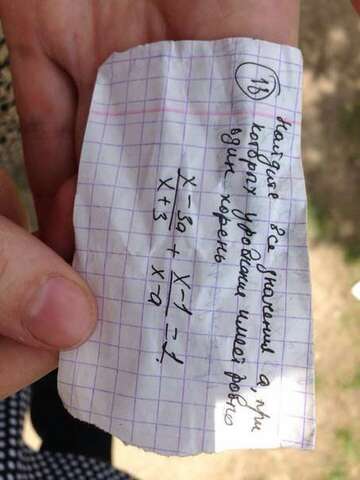 18
Найдите все значения а, при
которых уравнение имеет ровно
один корень
x-3a/x+3 + x-1/x-a = 1.